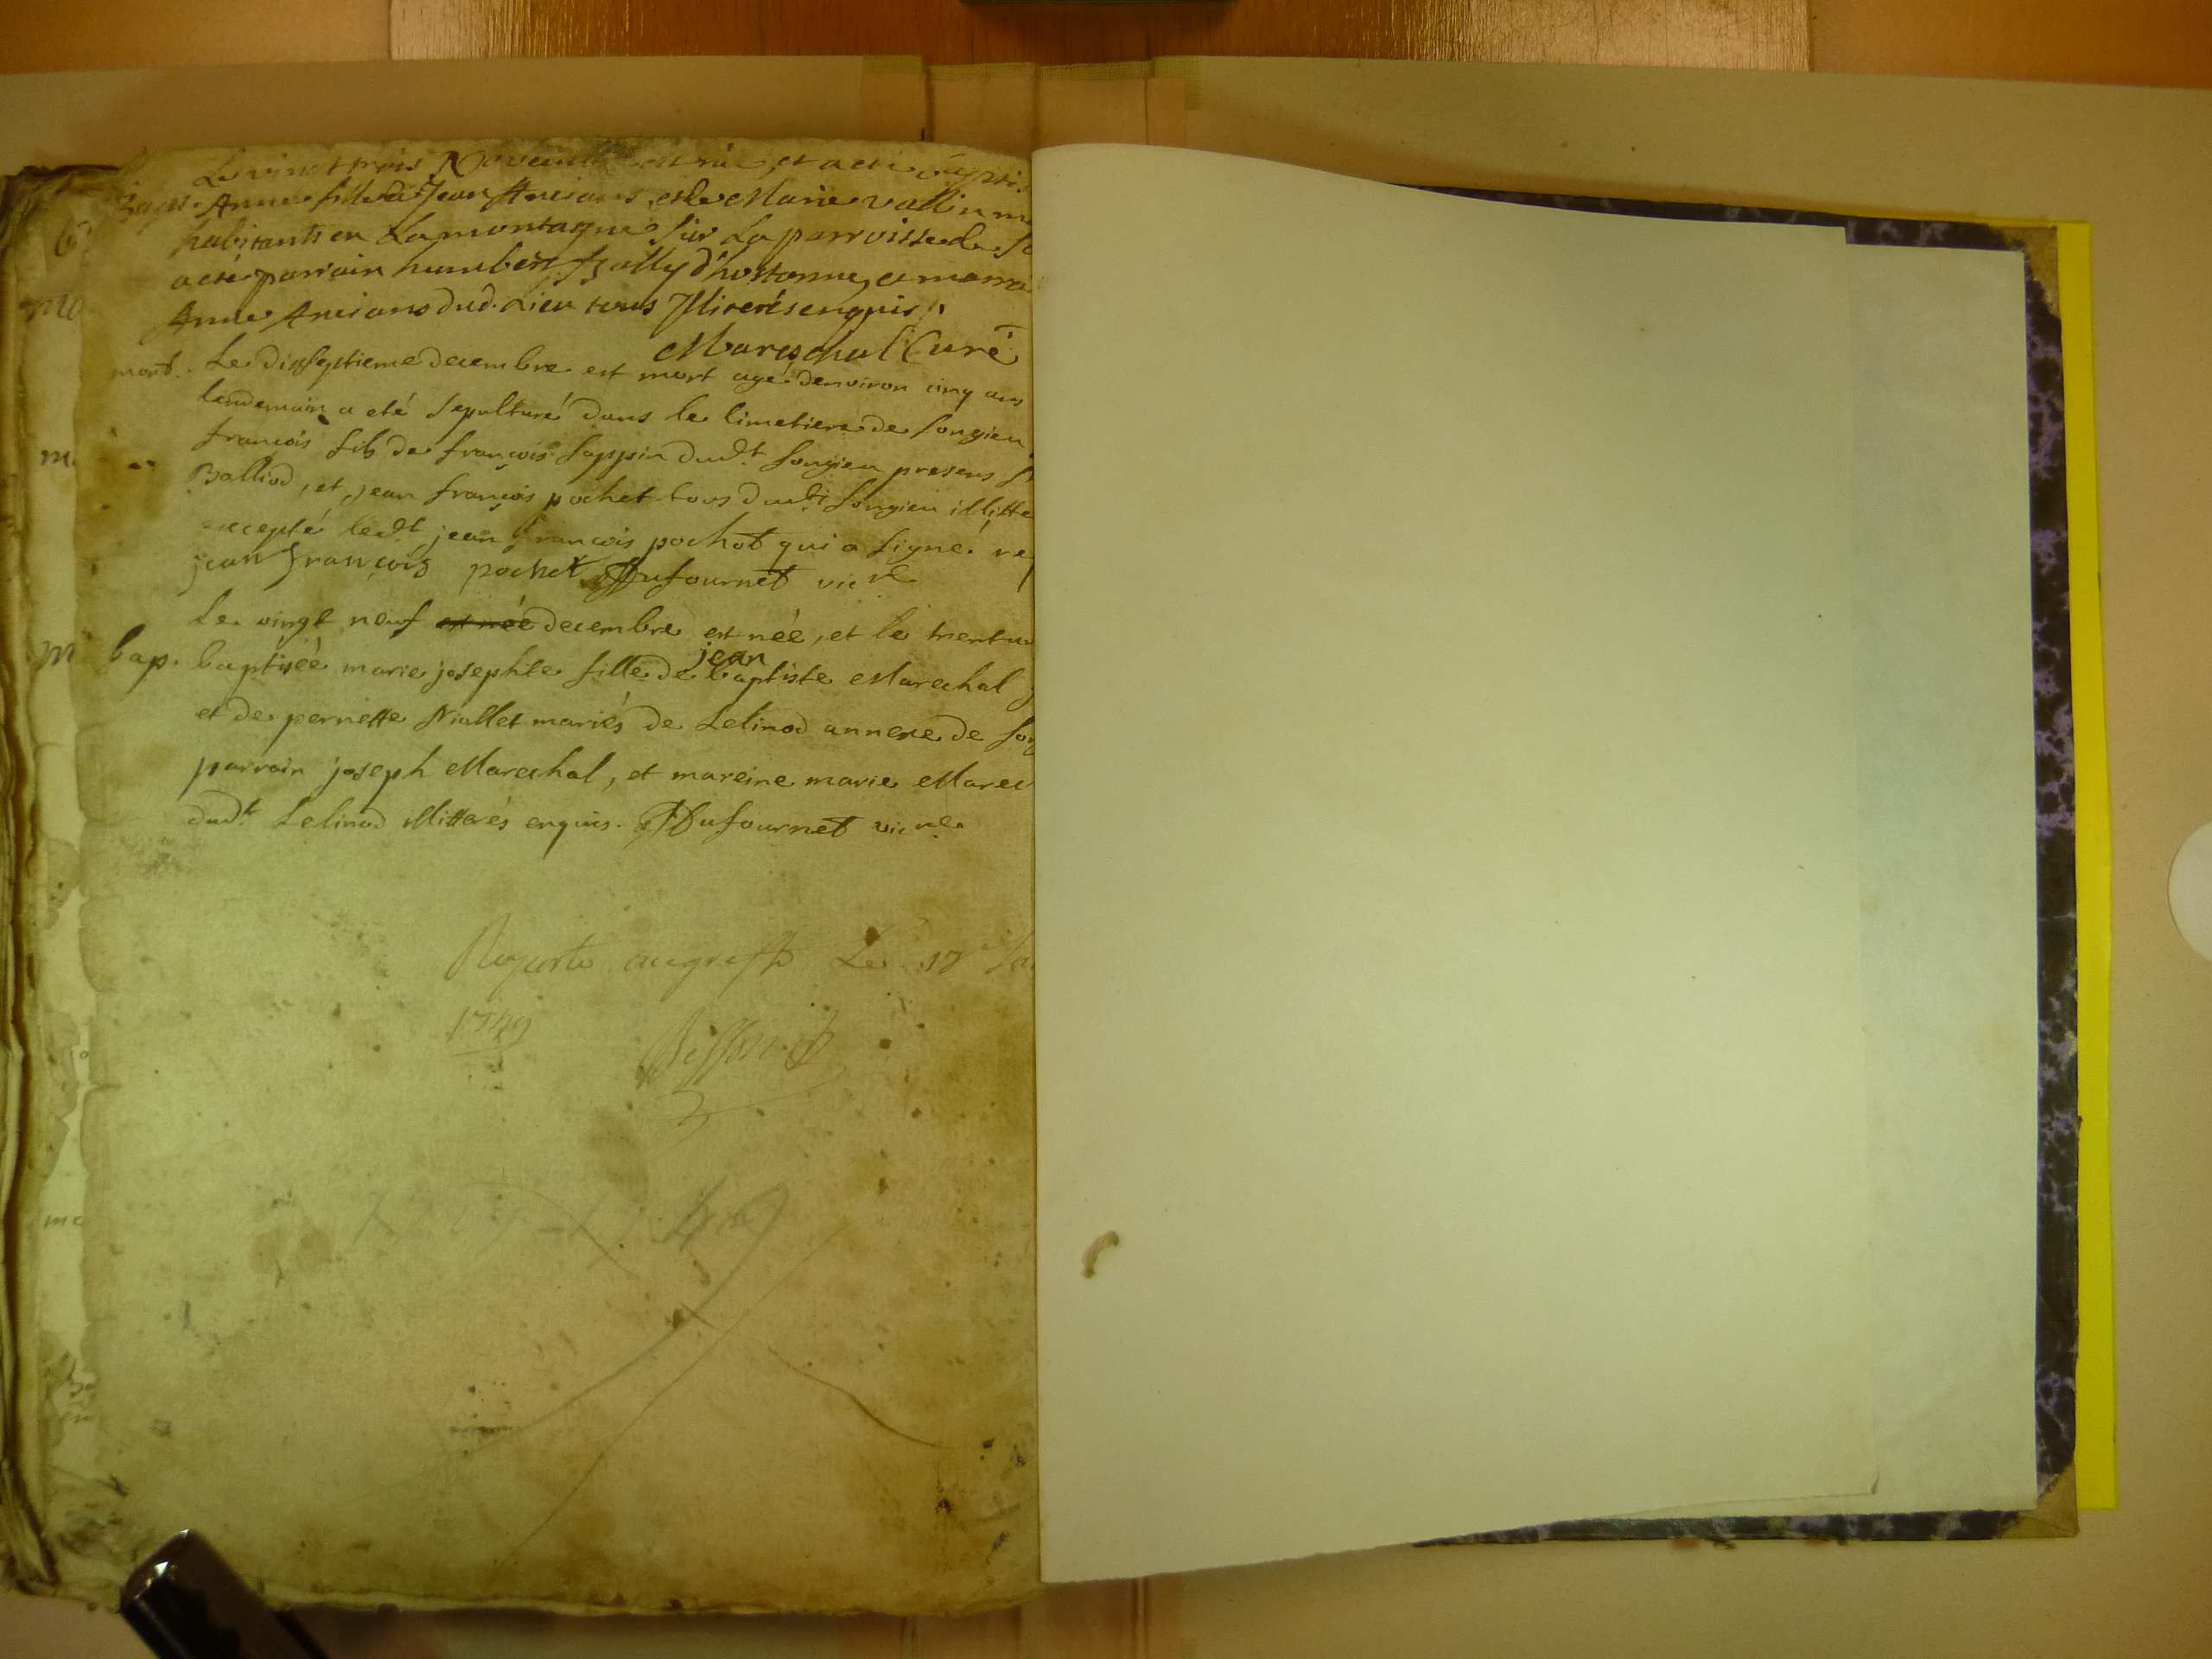 Le vingt trois Novembre est née, et a eté baptis
Bapt. Anne fille de Jean Ancians et de Marie vallin m
habitants en La montagne sur La parroisse de So
a eté parrain humbert d'hostonne, et marrai
Anne Ancians dud. Lieu tous Illiterés enquis
Mareschal Curé
mort. Le dixseptieme decembre est mort agé denviron cinq ans
landemain a eté sepulturé dans le cimetiere de songieu
francois fils de francois sappin dudt. songieu presens
Balliod, et jean francois pochet tous dudt. songieu illitte
excepté ledt. jean francois pochet qui a signé
jean françois pochet Dufournet vicre
Le vingt neuf est née decembre est née, et le trente
bap. baptisée marie josephte fille de jean baptiste Marechal
et de pernette Niallet mariés de Lelinod annexe de son
parrain joseph Marechal, et mareine marie Marec
dudt. Lelinod illitterés enquis. Dufournet vicre.
augreffe Le 17
1749